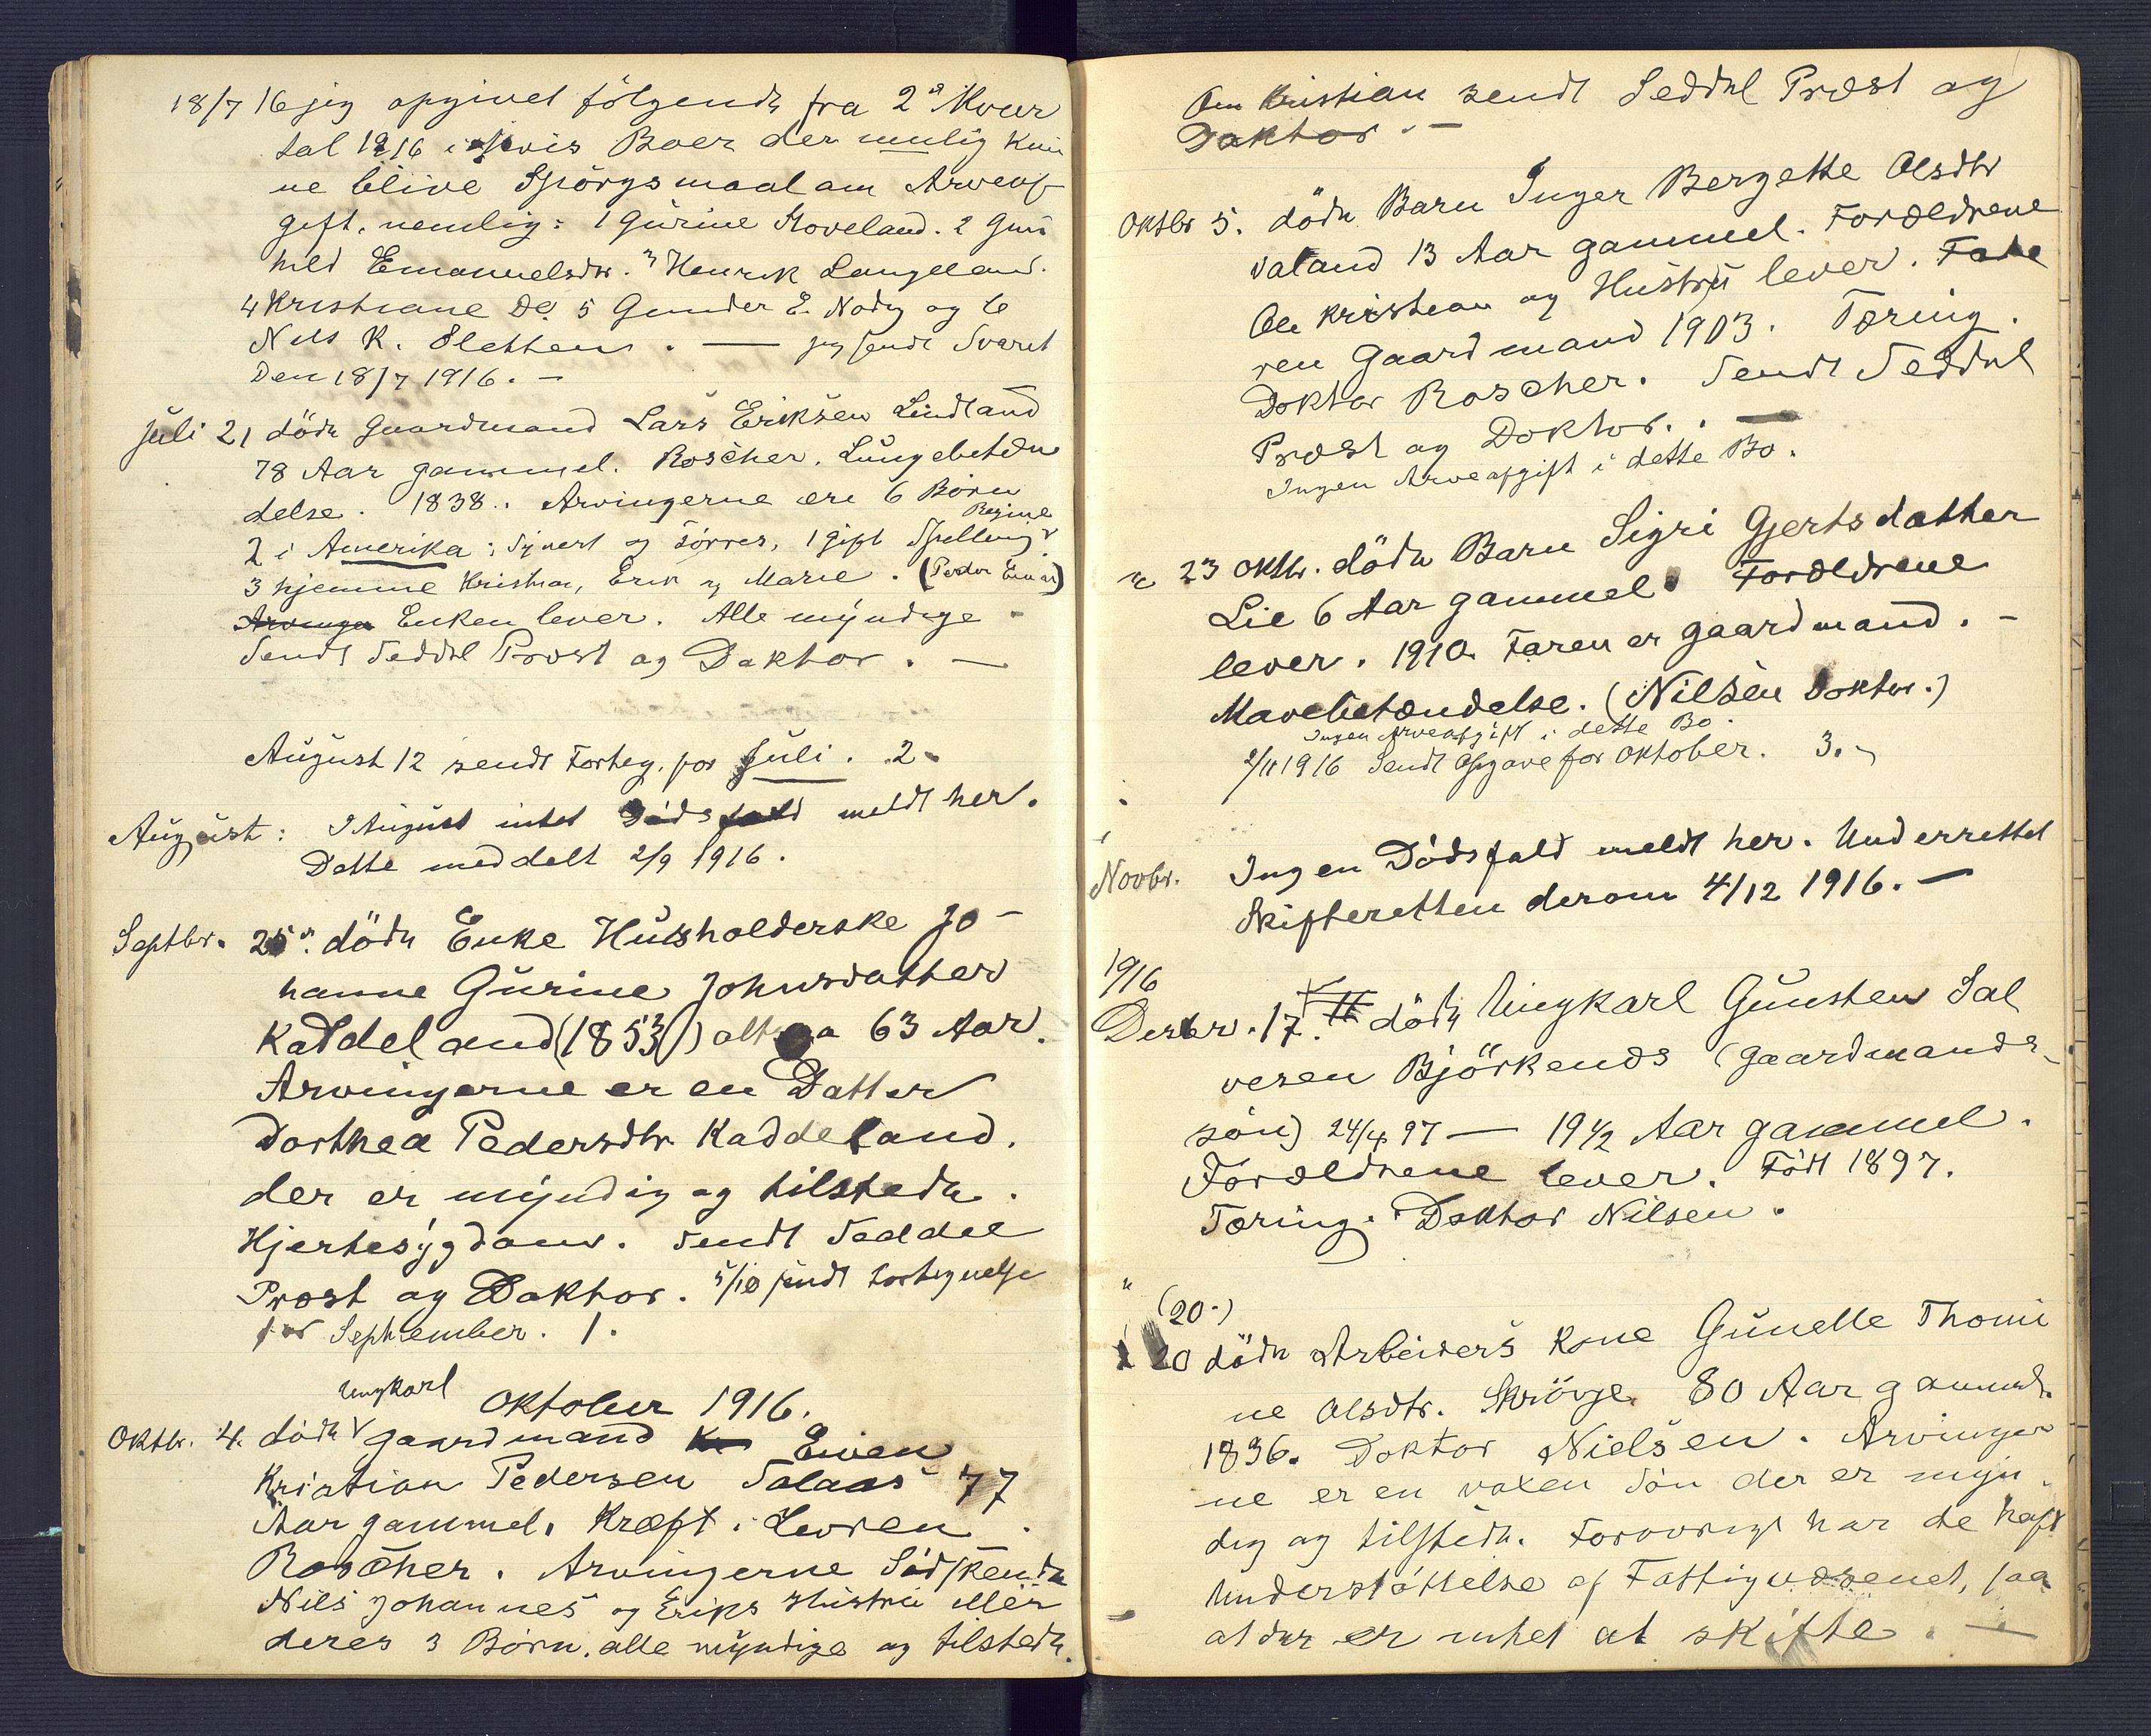 18/7 16 jeg opgivet følgende fra 2det Kvar
tal 1916 i hvis Boer der mulig kun
ne blive Spörgsmaal om Arveaf
gift. nemlig: 1 Gurine Skoveland. 2 Gun
hild Emanuelsdtr. 3 Henrik Langeland.
4 Kristiane Do 5 Gunder E. Nody og 6
Nils K. Sletten. — jeg sendt Svaret
Den 18/7 1916. —
Juli 21 döde Gaardmand Lars Eriksen Lindland
78 Aar gammel. Roscher. Lungebetæn
delse. 1838. Arvingerne ere 6 Börn
Regine
2 i Amerika: Sivert og Törres, 1 gift
3 hjemme Kristian, Erik og Marie. (Peder Einar)
Arvinger Enken lever. Alle myndige -
Sendt Seddel Prost og Doktor. —
August 12 sendt Forteg. for Juli. 2.
August: I August intet Dödsfald meldt her.
Dette meddelt 2/9 1916.
Septbr. 25. döde Enke Husholderske Jo-
hanne Gurine Johnsdatter
Kaddeland (1853) altsaa 63 Aar.
Arvingerne er en Datter
Dorthea Pedersdtr. Kaddeland.
der er myndig og tilstede.
Hjertesygdom. Sendt Seddel
Prost og Doktor. 5/10 sendt Fortegnelse
for September. 1.
Ungkarl Oktober 1916.
Oktbr. 4. döde V gaardmand Even
Kristian Pedersen Salaas 77
Aar gammel. Kræft i Levren.
Roscher. Arvingerne Södskende
Nils Johannes og Eriks Hustru eller
deres 3 Börn. alle myndige og tilstede.
Om Kristian sendt Seddel Præst og
Doktor. —
Oktbr 5. döde Barn Inger Bergette Olsdtr
Valand 13 Aar gammel. Forældrene
Ole Kristian og Hustru lever. Fade
ren Gaardmand 1903. Tæring.
Doktor Roscher. Sendt Seddel
Præst og Doktor. —
Ingen Arveafgift i dette Bo.
" 23 Oktbr. döde Barn Sigri Gjertsdatter
Lie 6 Aar gammel. Forældrene
lever. 1910. Faren er gaardmand. -
Mavebetændelse. (Nilsen Doktor.)
Ingen Arveafgift i dette Bo.
2/11 1916 Sendt Opgave for Oktober. 3.
Novbr. Ingen Dödsfald meldt her. Underrettet
Skifteretten derom 4/12 1916. —
1916
Desbr. 17. döde Ungkarl Gunsten Sal
vesen Björkenes (Gaardmands-
sön) 24/4 97 — 19 1/2 Aar gammel.
Forældrene lever. Född 1897.
Tæring. Doktor Nilsen.
" (20.)
20 döde Arbeiders Kone Gunelle Thomi
ne Olsdtr. Skröyje. 80 Aar gammel.
1836. Doktor Nielsen. Arvinger
ne er en voxen Sön der er myn
dig og tilstede. Foroverigt har de haft
Understöttelse af Fattigvæsenet, saa
at der er intet at skifte. —